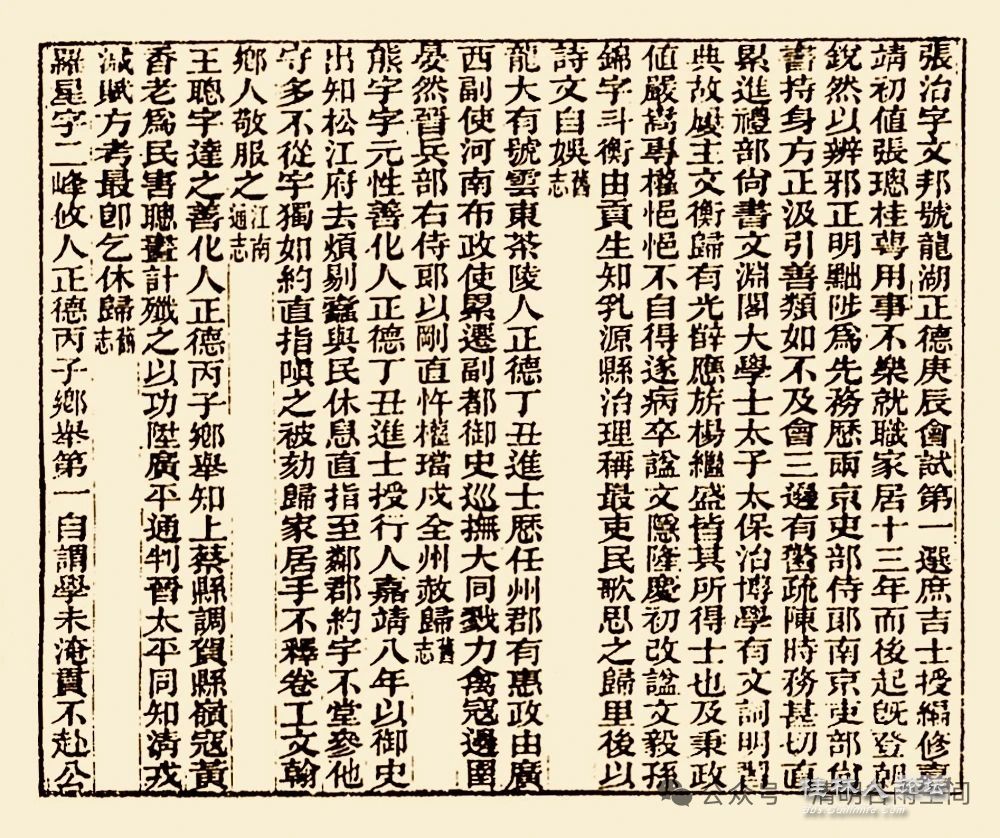 張治字文邦號龍湖正德庚辰會試第一選庶吉士授編修嘉
靖初值張璁桂萼用事不樂就職家居十三年而後起旣登朝
銳然以辨邪正明黜陟爲先務歷兩京吏部侍郎南京吏部尙
書持身方正汲引善類如不及會三邊有警疏陳時務甚切直
累進禮部尙書文淵閣大學士太子太保治博學有文詞明習
典故屢主文衡歸有光薛應旂楊繼盛皆其所得士也及秉政
値嚴嵩專權悒悒不自得遂病卒諡文隱隆慶初改諡文毅孫
錦字斗衡由貢生知乳源縣治理稱最吏民歌思之歸里後以
詩文自娛舊志
龍大有號雲東茶陵人正德丁丑進士歷任州郡有惠政由廣
西副使河南布政使累遷副都御史巡撫大同戮力禽寇邊圉
晏然晉兵部右侍郎以剛直忤權璫戍全州赦歸舊志
熊宇字元性善化人正德丁丑進士授行人嘉靖八年以御史
出知松江府去煩剔蠹與民休息直指至鄰郡約宇不堂參他
守多不從宇獨如約直指嗔之被劾歸家居手不釋卷工文翰
鄉人敬服之江南通志
王聰字達之善化人正德丙子鄉舉知上蔡縣調賀縣嶺寇黃
香老爲民害聰畫計殲之以功陞廣平通判晉太平同知淸戎
減賦方考最卽乞休歸舊志
羅星字二峰攸人正德丙子鄉舉第一自謂學未淹貫不赴公
公众号
桂林人论坛